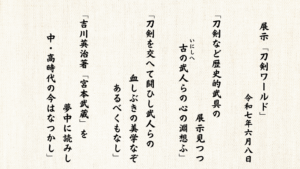 展示「刀剣ワールド」
令和七年六月八日
「刀剣など歴史的武具の
展示見つつ
古の武人らの心の淵想ふ」
いにしへ
「刀剣を交へて闘ひし武人らの
血しぶきの美学なぞ
あるべくもなし」
「吉川英治著「宮本武蔵」を
夢中に読みし
中・高時代の今はなつかし」